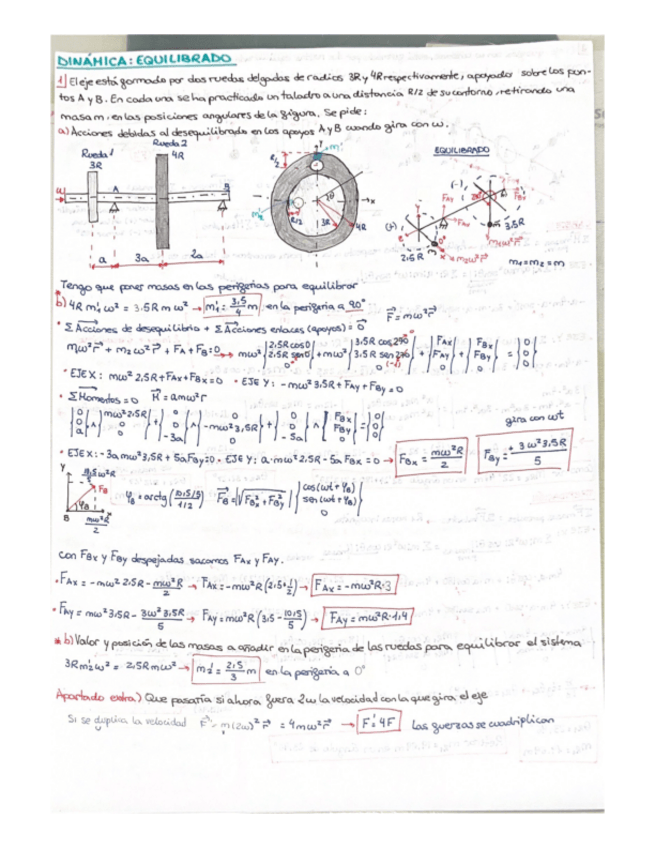 DINÁMICA: EQUILIBRADO
1) El eje está formado por dos ruedas delgadas de radios 3R y 4R respectivamente, apoyados sobre los pun-
tos A y B. En cada una se ha practicado un taladro a una distancia R/2 de su contorno, retirando una
masa m, en las posiciones angulares de la figura. Se pide:
a) Acciones debidas al desequilibrado en los apoyos A y B cuando gira con ω.
Rueda 1
3R
Rueda 2
4R
A
B
a
3a
2a
Y
m
R/2
x
R/2
3R
4R
EQUILIBRADO
(-1)
FAy
FBy
(+)
FAx
3.5R
2.5R
m
m₁ω²r
m₂ω²r
m₁=m₂=m
Tengo que poner masas en las periferias para equilibrar
b) 4R m'₁ ω² = 3.5R m ω² → m'₁ = 3,5/4 m en la periferia a 90°
F = mω²r
• Σ Acciones de desequilibrio + Σ Acciones enlaces (apoyos) = 0
m₁ω²r + m₂ω²r + FA + FB = 0 → mω² |2.5R cos0 2.5R sen0 0| + mω² |3.5R cos270 3.5R sen270 0| + |FAx FAy 0| + |FBx FBy 0| = |0 0 0|
• EJE X: mω² 2,5R + FAx + FBx = 0 • EJE Y: -mω² 3.5R + FAy + FBy = 0
• Σ Momentos = 0 M = amω²r
|0 0 a| ∧ |mω²2.5R 0 0| + |0 0 -3a| ∧ |0 -mω²3,5R 0| + |0 0 -5a| ∧ |FBx FBy 0| = |0 0 0|
gira con ωt
• EJE X: -3amω²3,5R + 5aFBy = 0 • EJE Y: a·mω²2.5R - 5a FBx = 0 → FBx = mω²R/2 FBy = + 3ω²3,5R/5
Y
FB
φB
B
mω²R/2
φB = arctg (10,5/5 / 1/2) FB = |√F²Bx + F²By| |cos(ωt + φB) sen(ωt + φB) 0|
con FBx y FBy despejadas sacamos FAx y FAy.
• FAx = -mω² 2.5R - mω²R/2 → FAx = -mω²R (2.5 + 1/2) → FAx = -mω²R·3
• FAy = mω² 3.5R - 3ω²3,5R/5 → FAy = mω²R (3.5 - 10,5/5) → FAy = mω²R·1,4
* b) Valor y posición de las masas a añadir en la periferia de las ruedas para equilibrar el sistema
3R m'₂ω² = 2,5R mω² → m'₂ = 2,5/3 m en la periferia a 0°
Apartado extra) Que pasaría si ahora fuera 2ω la velocidad con la que gira el eje
Si se duplica la velocidad F' = m(2ω)² r = 4mω²r → F' = 4F Las fuerzas se cuadriplican